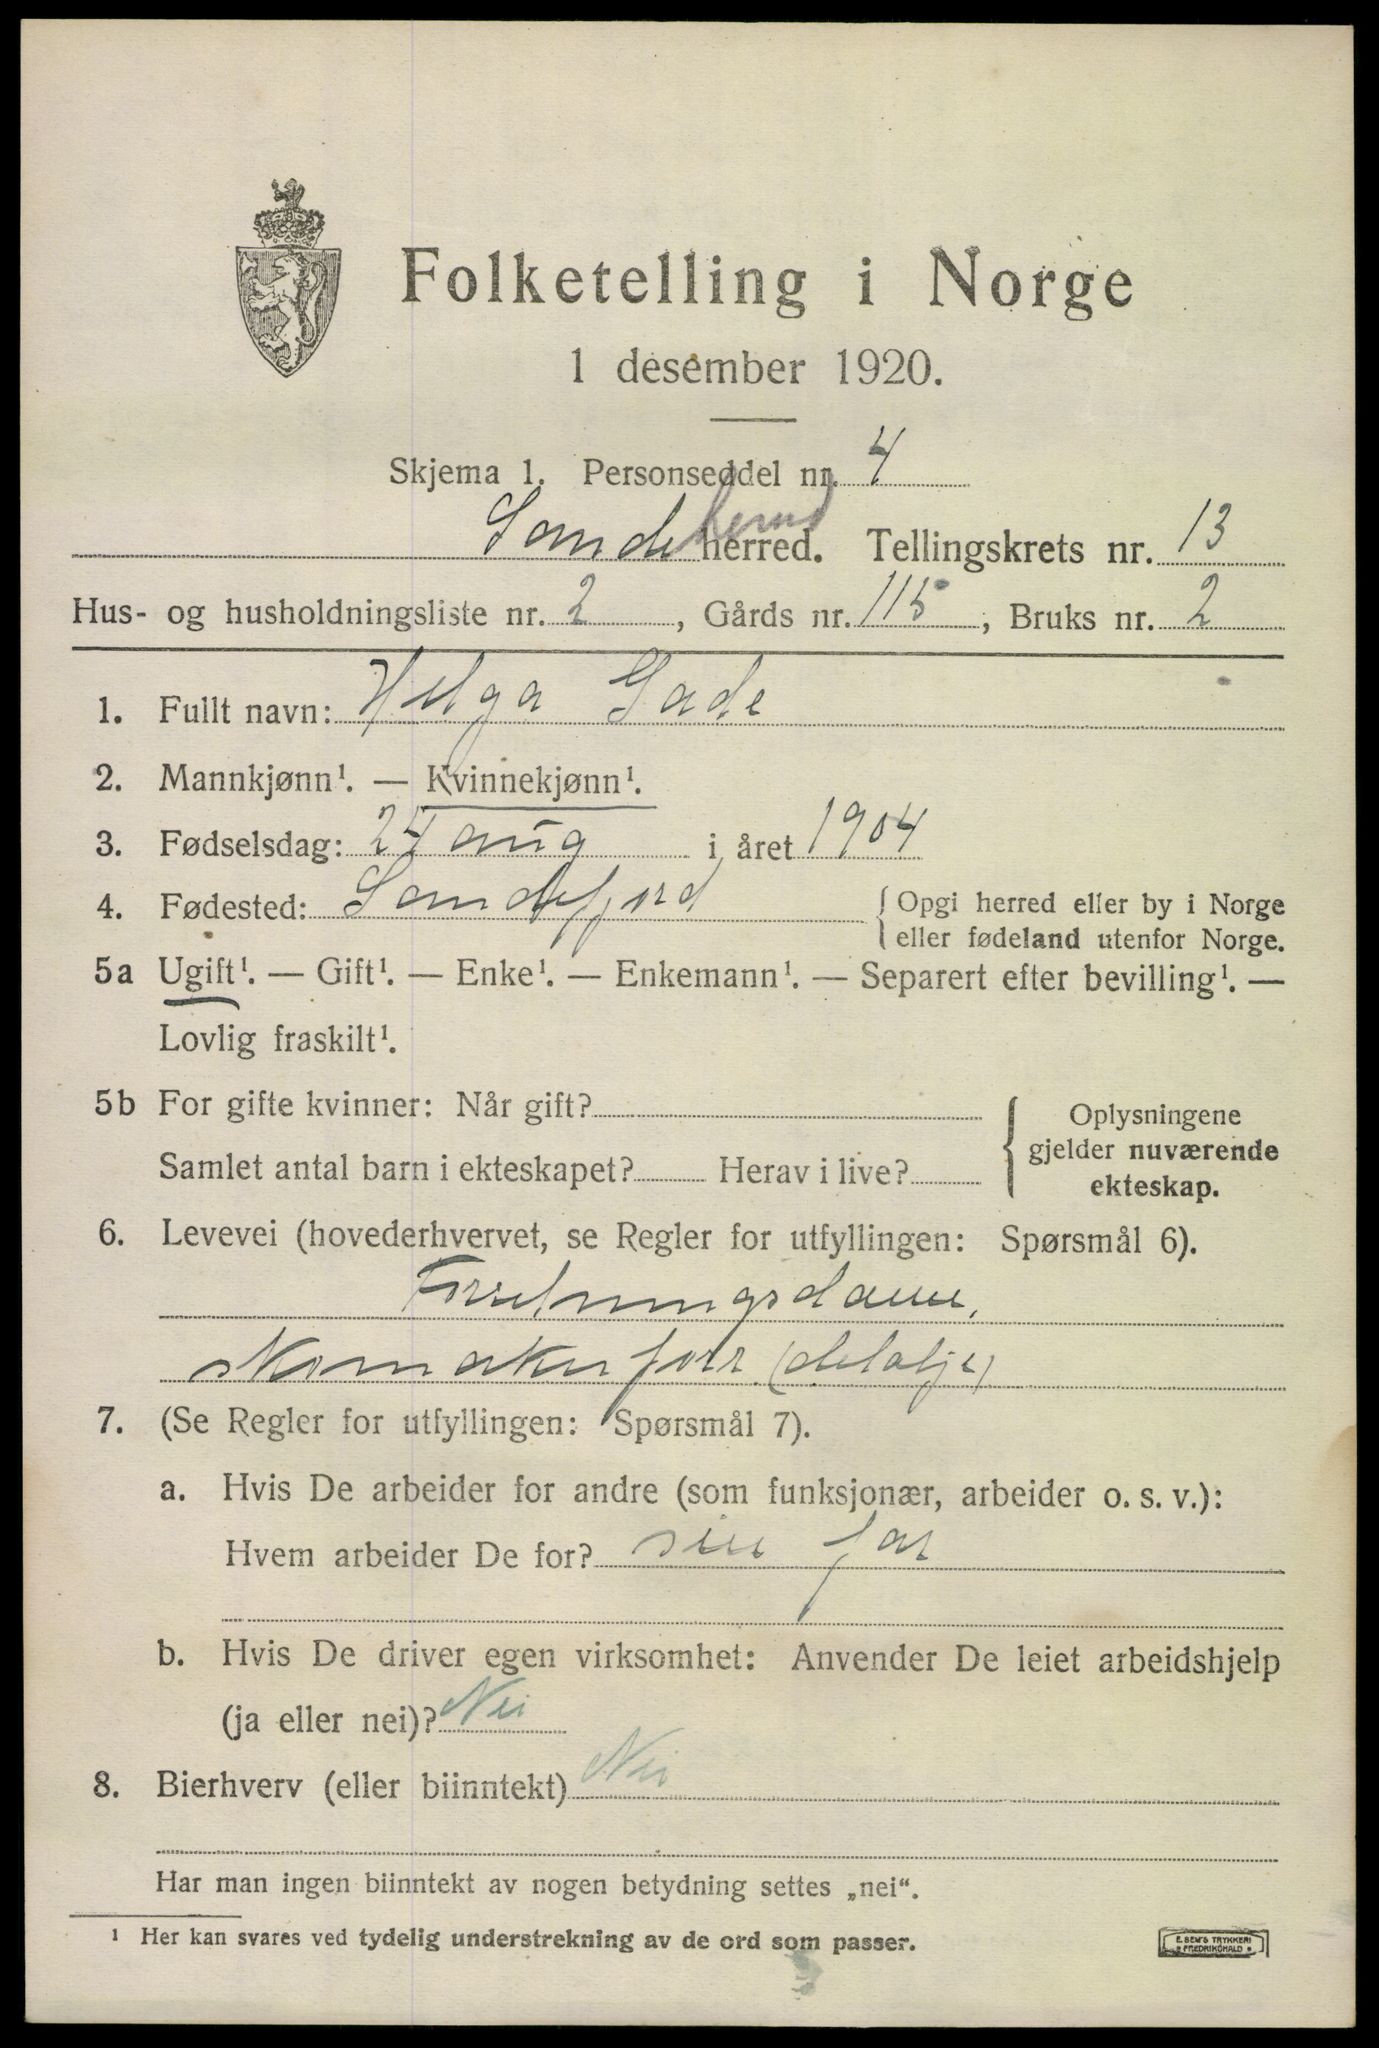 Folketelling i Norge
1 desember 1920.
Skjema 1. Personseddel nr. 4
Sandeherred herred. Tellingskrets nr. 13
Hus- og husholdningsliste nr. 2, Gårds nr. 115, Bruks nr. 2
1. Fullt navn: Helga Gade
2. Mannkjønn¹. — Kvinnekjønn¹.
3. Fødselsdag: 24 aug i året 1904
4. Fødested: Sandefjord { Opgi herred eller by i Norge
eller fødeland utenfor Norge.
5a Ugift¹. — Gift¹. — Enke¹. — Enkemann¹. — Separert efter bevilling¹. —
Lovlig fraskilt¹.
5b For gifte kvinner: Når gift? { Oplysningene
gjelder nuværende
Samlet antal barn i ekteskapet? Herav i live?
ekteskap.
6. Levevei (hovederhvervet, se Regler for utfyllingen: Spørsmål 6).
Forretningsdame,
skomakerforr. (detalje)
7. (Se Regler for utfyllingen: Spørsmål 7).
a. Hvis De arbeider for andre (som funksjonær, arbeider o. s. v.):
Hvem arbeider De for? sin far
b. Hvis De driver egen virksomhet: Anvender De leiet arbeidshjelp
(ja eller nei)? Nei
8. Bierhverv (eller biinntekt) Nei
Har man ingen biinntekt av nogen betydning settes „nei“.
¹ Her kan svares ved tydelig understrekning av de ord som passer.
E. SEM'S TRYKKERI
FREDRIKSHALD